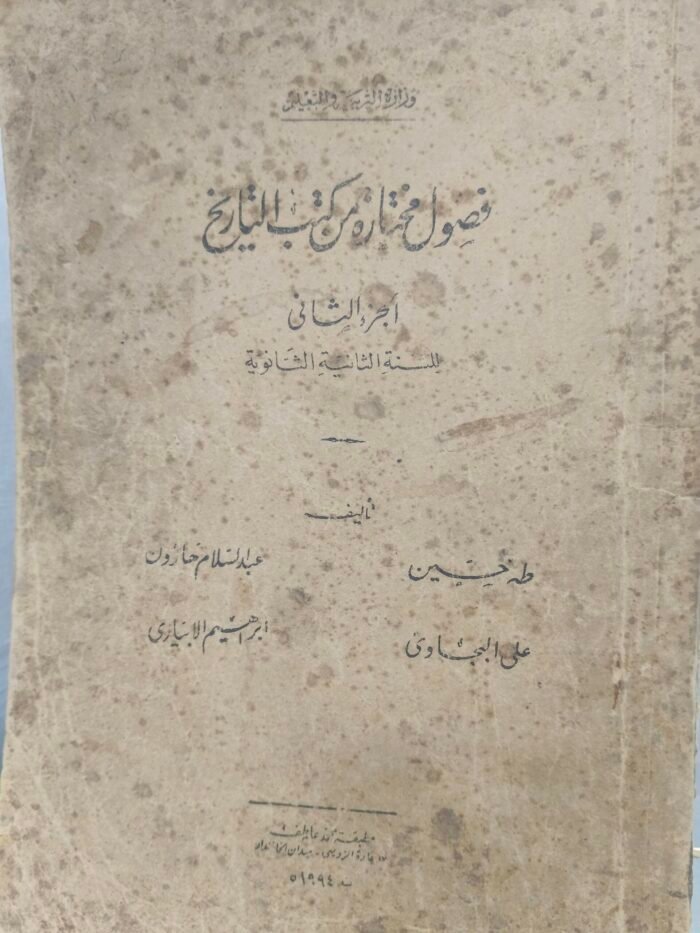 وزارة التربية والتعليم
فصول مختارة من كتب التاريخ
الجزء الثانى
للسنة الثانية الثانوية
تأليف
طه حسين
عبد السلام هارون
على البجاوى
ابراهيم الابيارى
مطبعة
ميدان
٥١٩٩٤